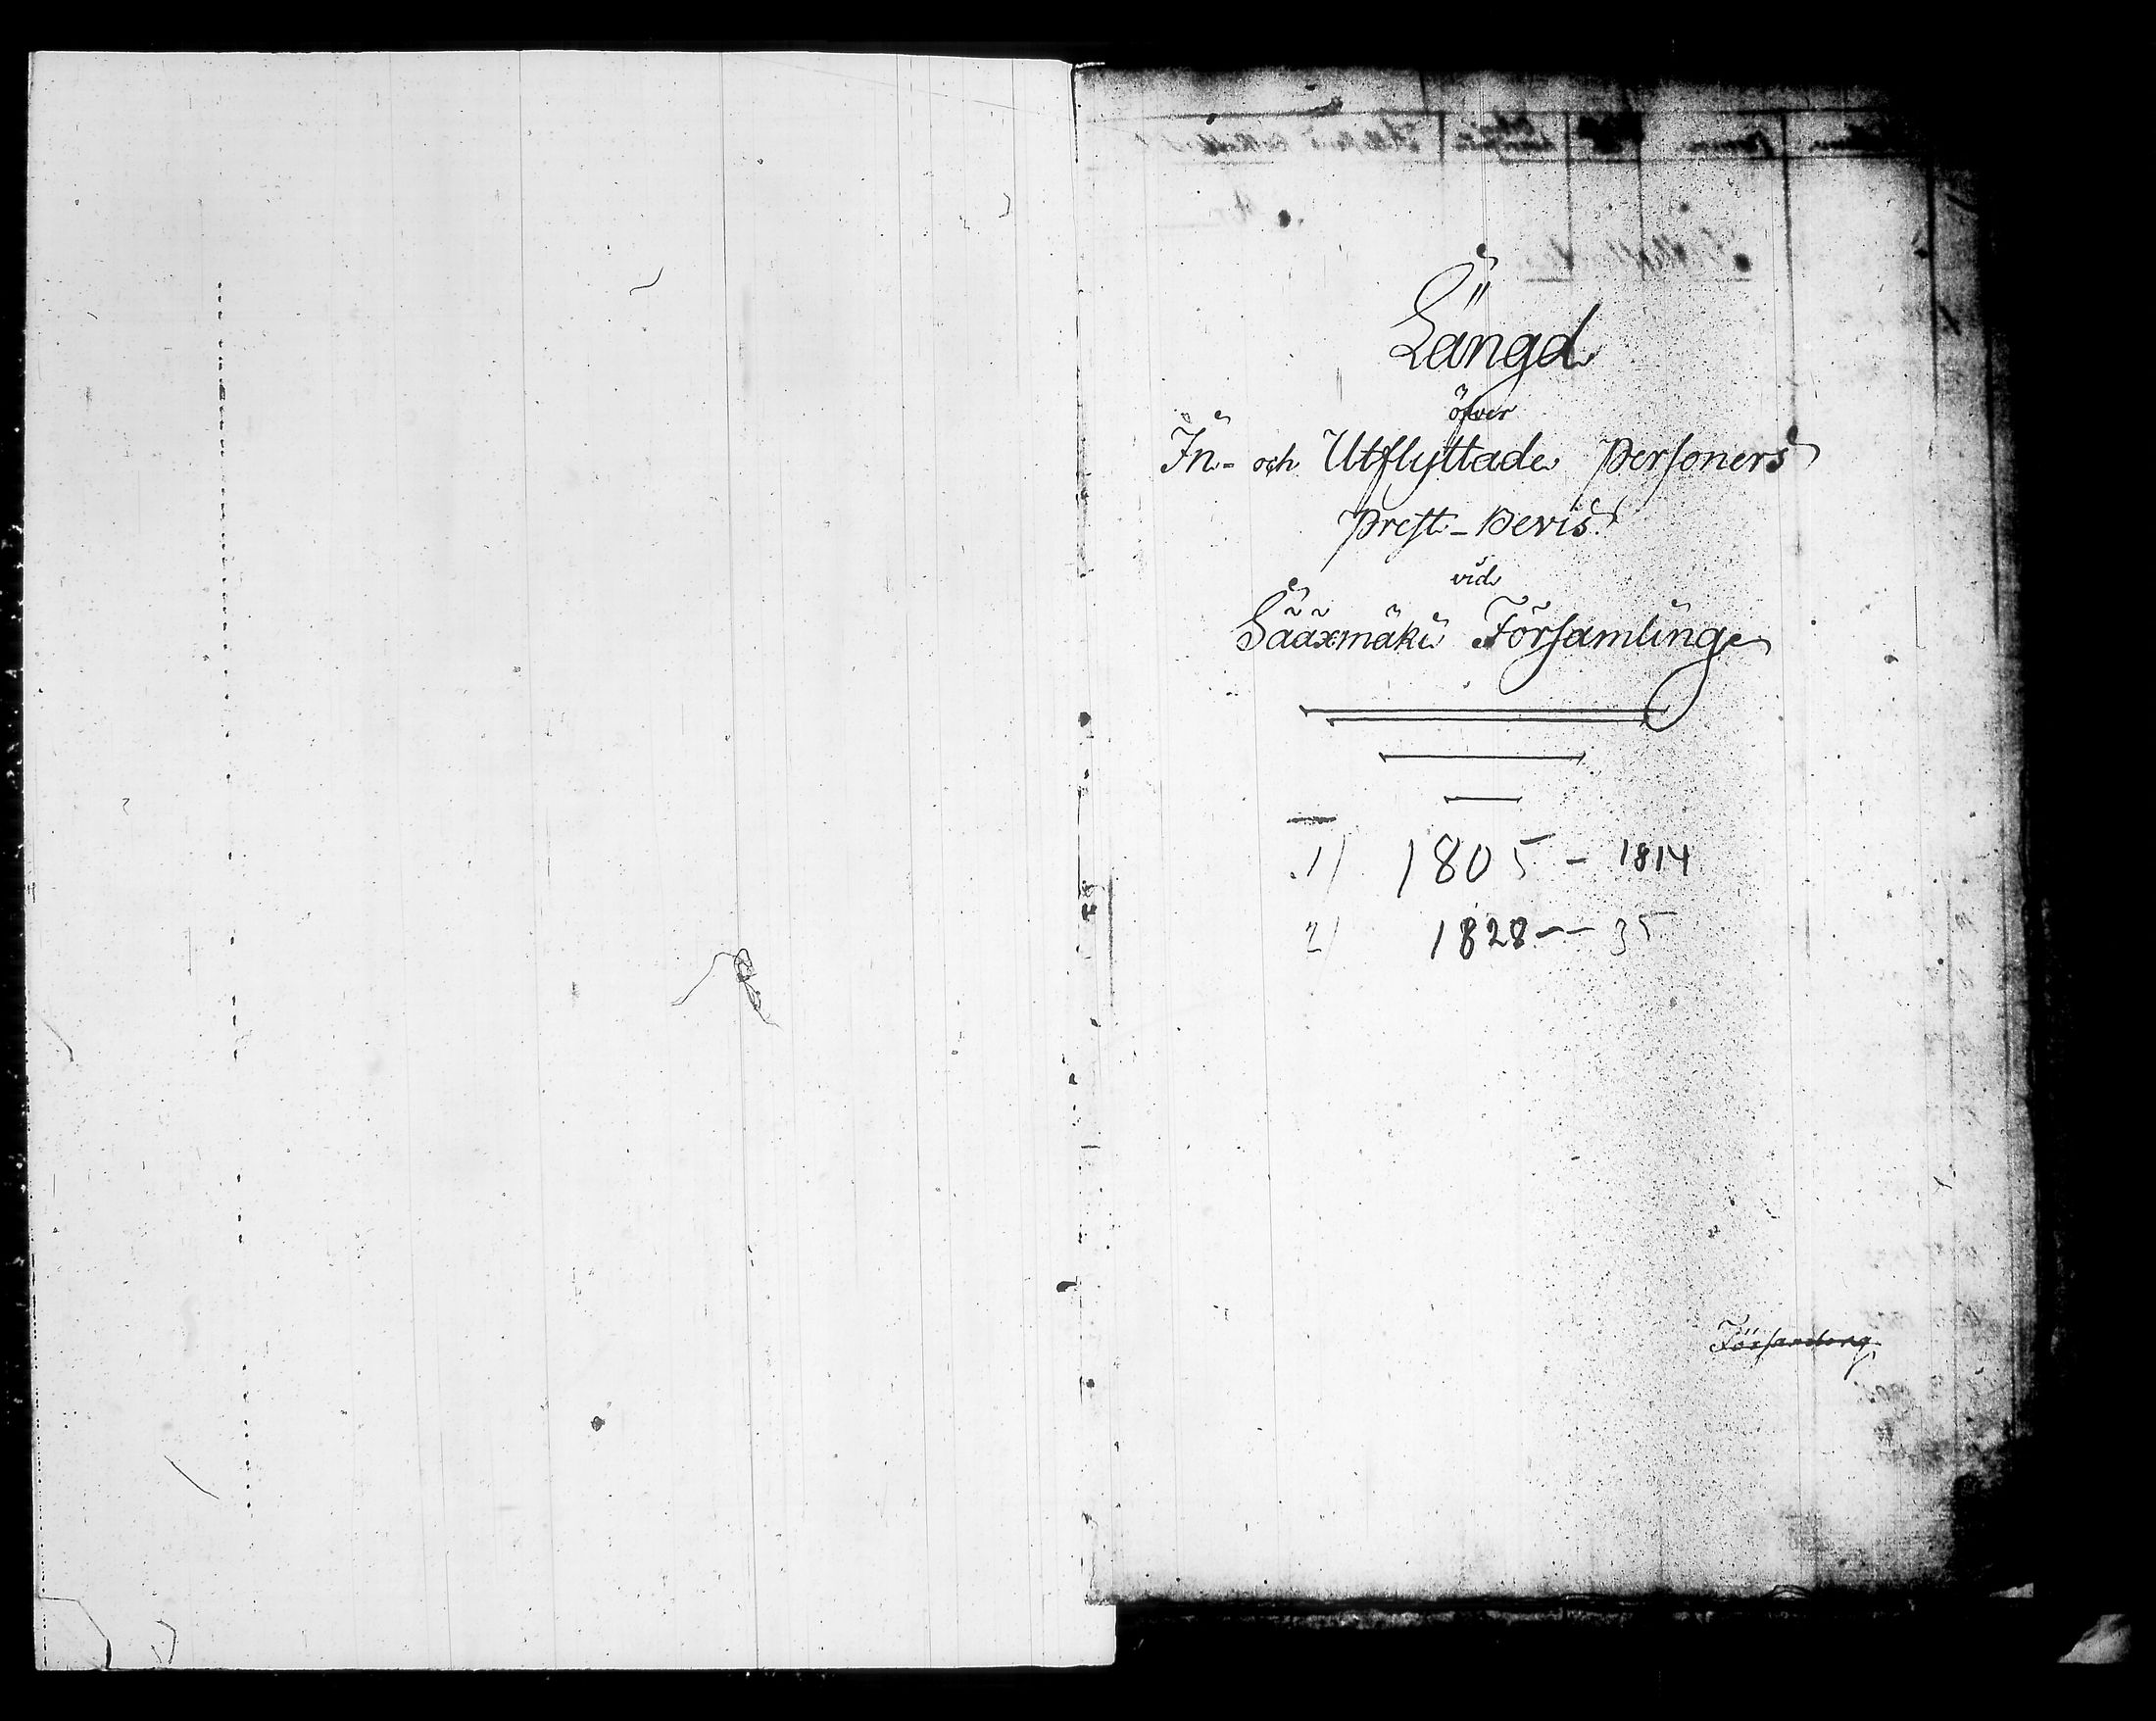 Längd
öfver
In- och Utflyttade Personers
Prest-Bevis
vid
Sääxmäki Församling
1) 1805 - 1814
2) 1828 -- 35
Församlong